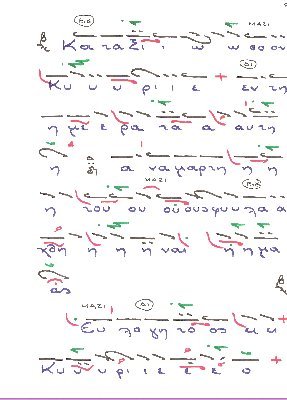 ΜΑΖΙ
Κα τα ξι ι ω ω σο ον
Κυ υ υ ρι ι ε εν τη
η με ε ρα τα α αυ τη
η α να μαρτη η η
ΜΑΖΙ
η του ου ου ους φυ υ λα α
χθη η η η ναι η η μα
ας
ΜΑΖΙ
Ευ λο γη το ο ος
Κυ υ υ ρι ι ε ε ε ο